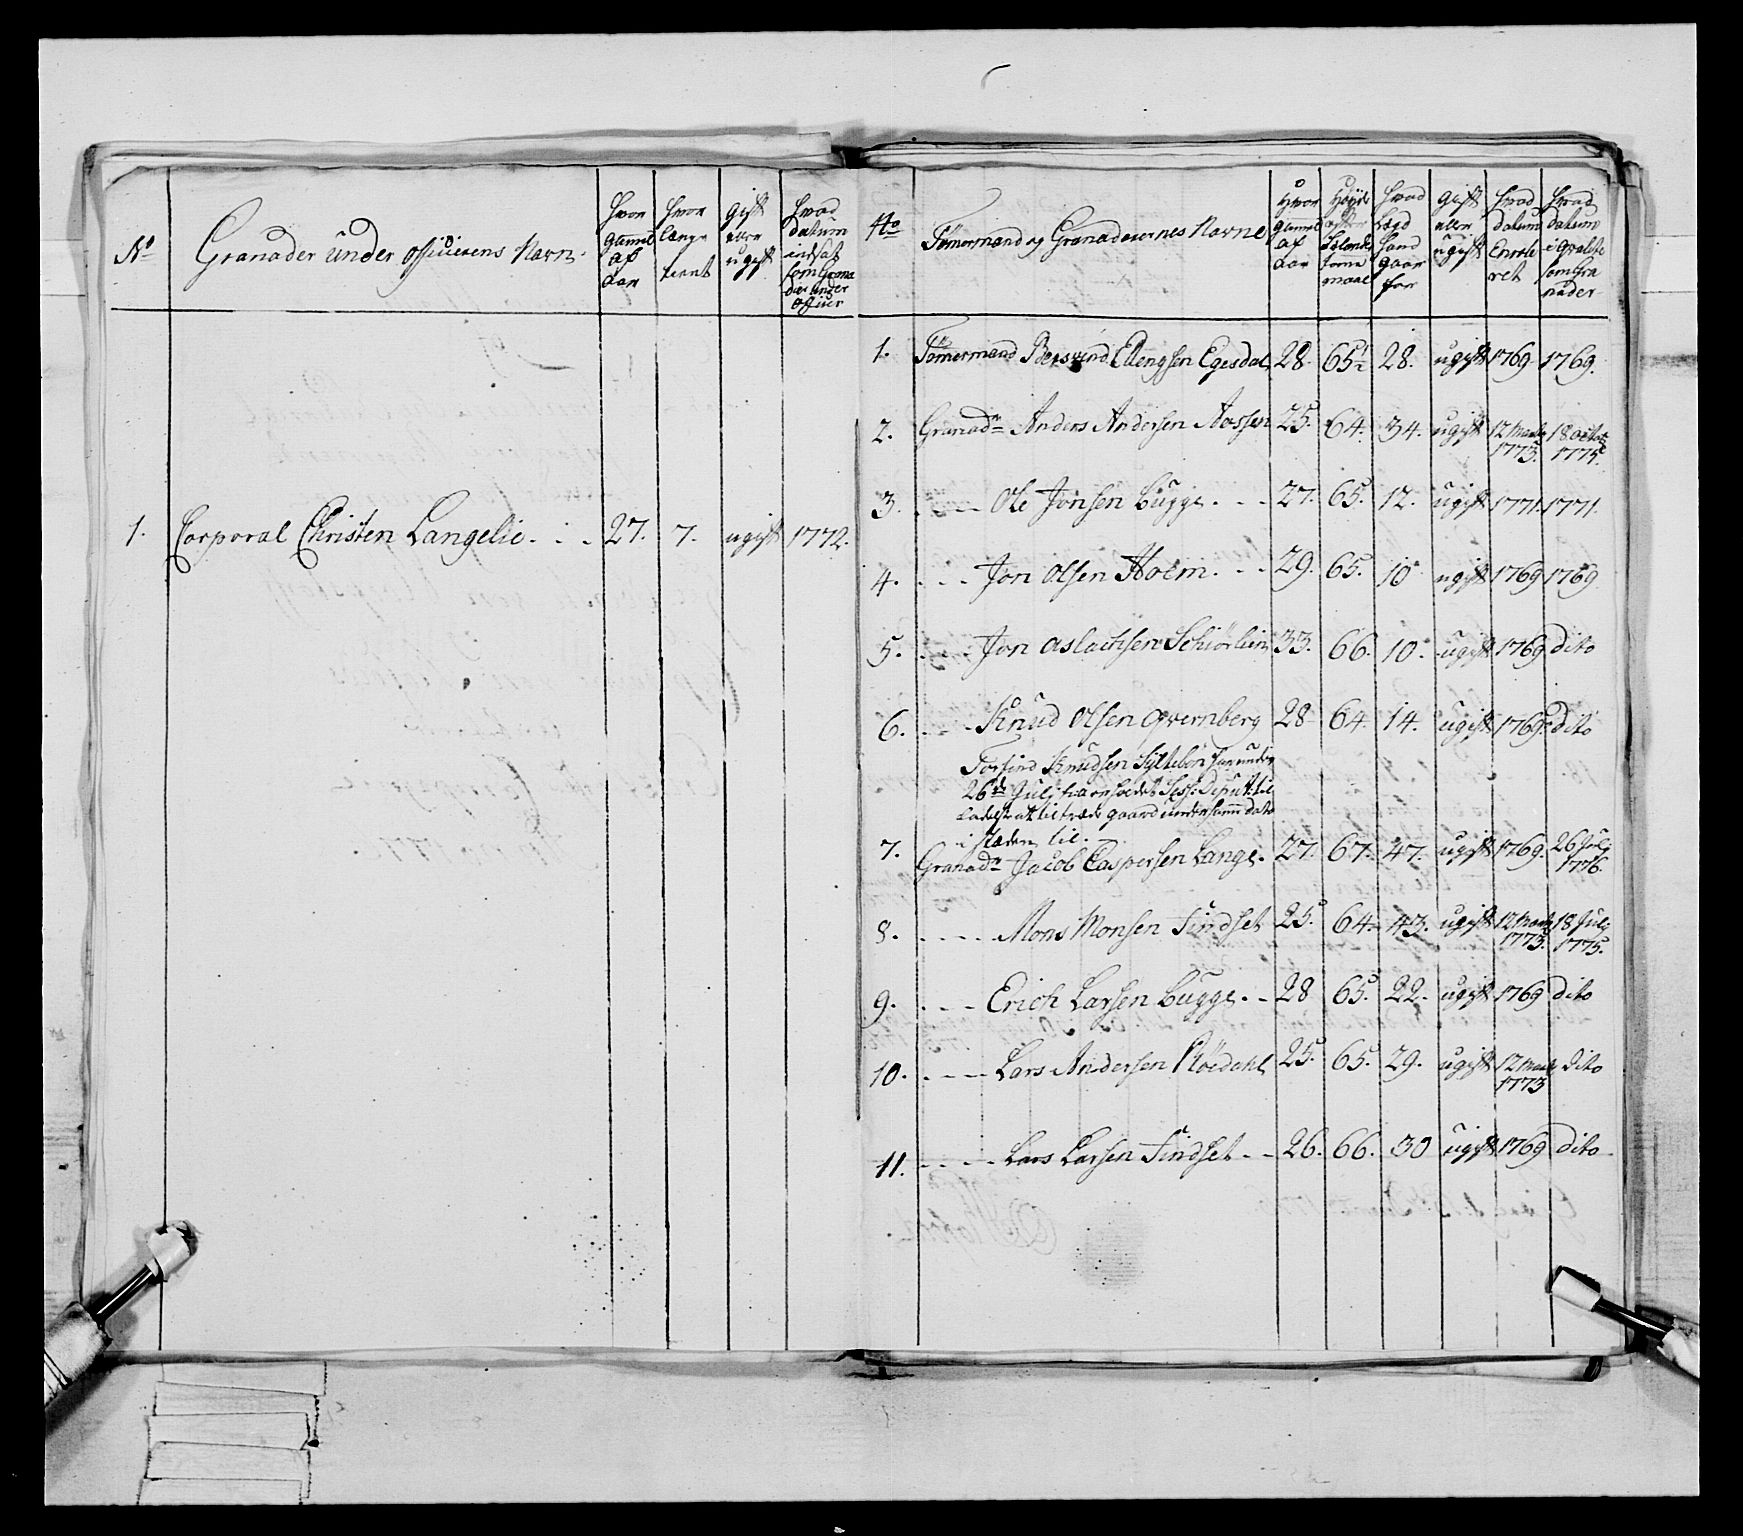 No
Granader under officierens Navn
Hvor gammel af Aar
Hvor længe tient
gift eller ugift
Hvad datum indsat som Granadeer under officier
1. Corporal Christen Langelie. 27. 7. ugift 1772.
No
Tømermand og Granaderernes Navne
Hvor gammel af Aar
Høyde efter Sælands tomme maal
Hvad Lægd Hand gaar for
gift eller ugift
Hvad datum Enrolleret
Hvad datum i gvalite som Granader
1. Tømermand Bersvend Ellengsen Egesdal 28. 65½ 28. ugift 1769. 1769.
2. Granadr Anders Andersen Aassen 25. 64. 34. ugift 12 Marty 1773. 18 octob 1775.
3. Ole Jonsen Bugge. 27. 65. 12. ugift 1771. 1771.
4. Jon Olsen Holm. 29. 65. 10 ugift 1769 1769
5. Jon Aslachsen Schiørlien 33. 66. 10. ugift 1769 dito
6. Knud Olsen Qvernberg 28 64. 14. ugift 1769. dito
Torfind Knudsen Syltebøe har under
26de Julj holdet Sess: Deput: til
Ladest at tiltræde gaard under samme dato
i stæden til
7. Granadr Jacob Caspersen Lange. 27. 67. 47. ugift 1769. 26 Julj 1776.
8. Mons Monsen Tindset 25. 64. 43. ugift 12 Marty 1773. 18 Julj 1775.
9. Erich Larsen Bugge. 28 65. 22. ugift 1769 dito
10. Lars Andersen Røedahl 25. 65. 29. ugift 12 Marty 1773 dito
11. Lars Larsen Tindset 26. 66. 30 ugift 1769 dito